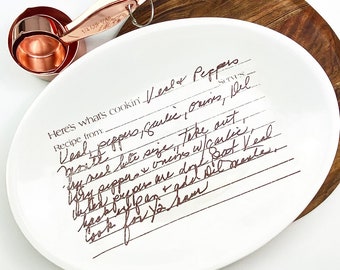 Here's what's cookin' Veal & Peppers
Recipe from Serves
Veal, peppers, garlic, onions, Del
monte
in veal bite size, Take out,
fry peppers & onions w/ garlic,
until peppers are done. Put Veal
back in pan & add Del monte,
cook for ½ hour